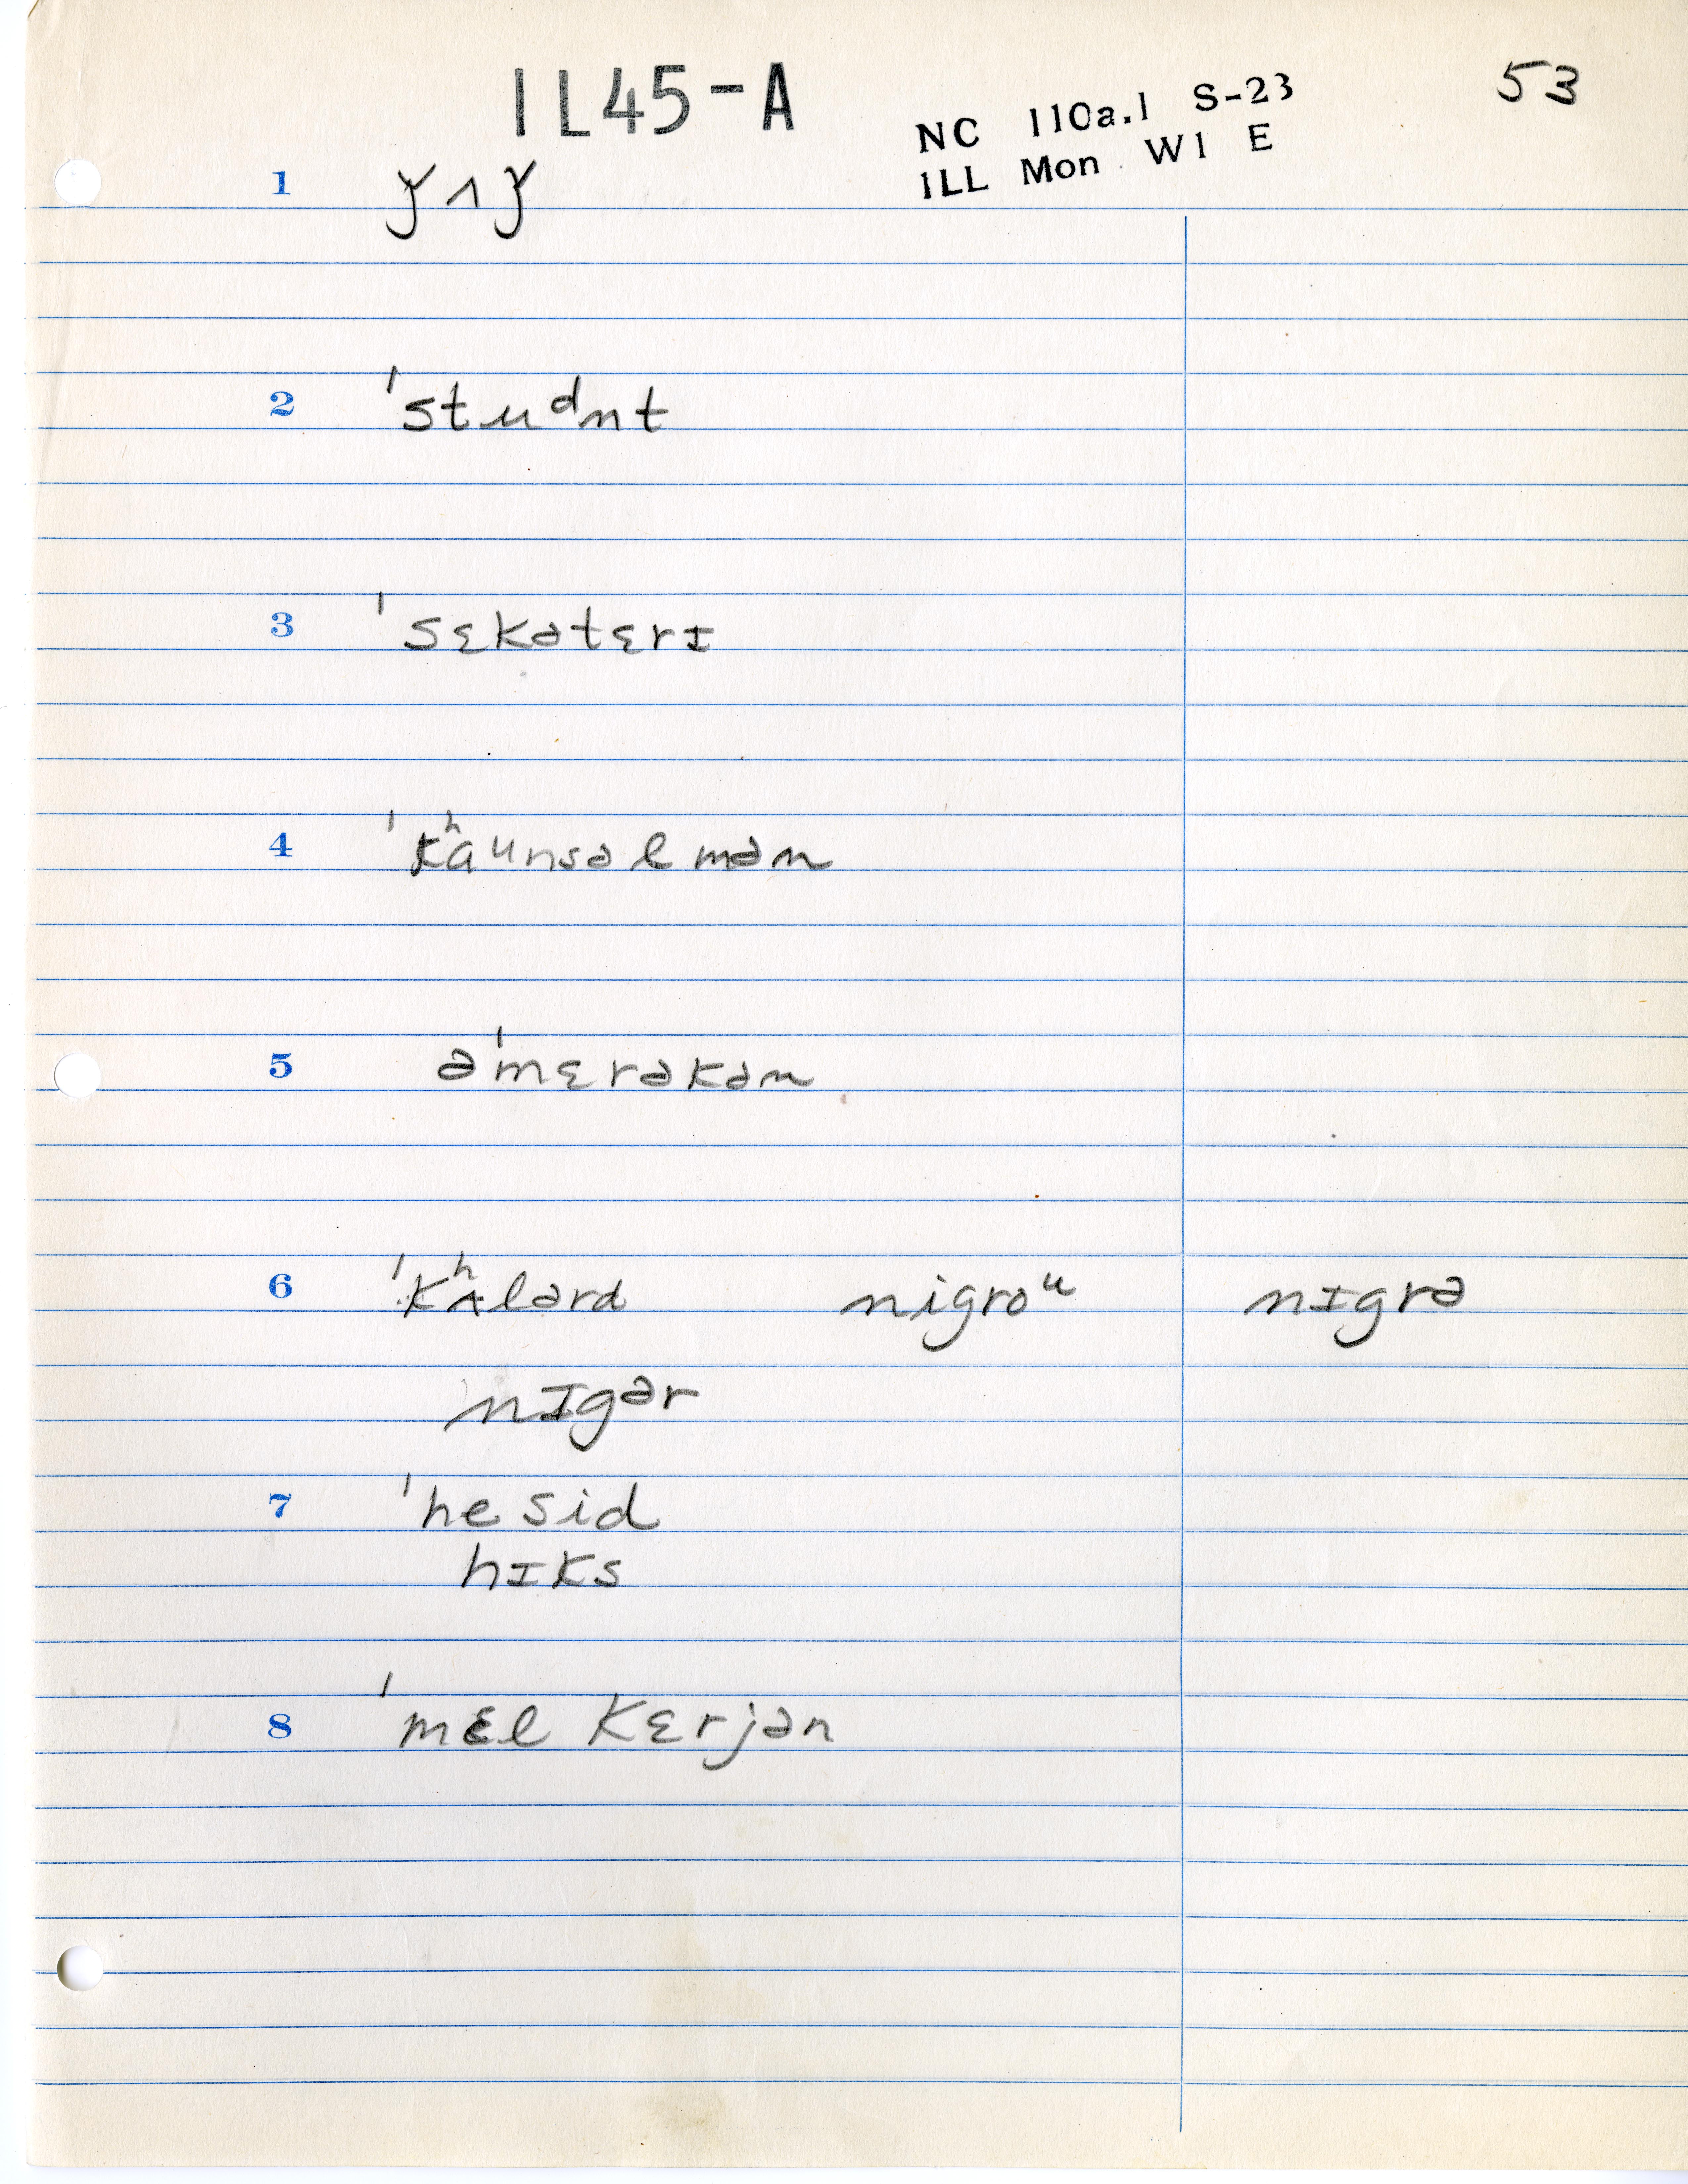 IL45-A
53
NC 110a.1 S-23
ILL Mon W1 E
1 ǰʌǰ
2 ˈstuᵈnt
3 ˈsɛkətɛrɪ
4 ˈkʰaᵘnsəlmən
5 əˈmɛrəkən
6 ˈkʰʌlərd nigroᵘ nɪgrə
nɪgər
7 ˈhesid
hɪks
8 ˈmɛl kɛrjən